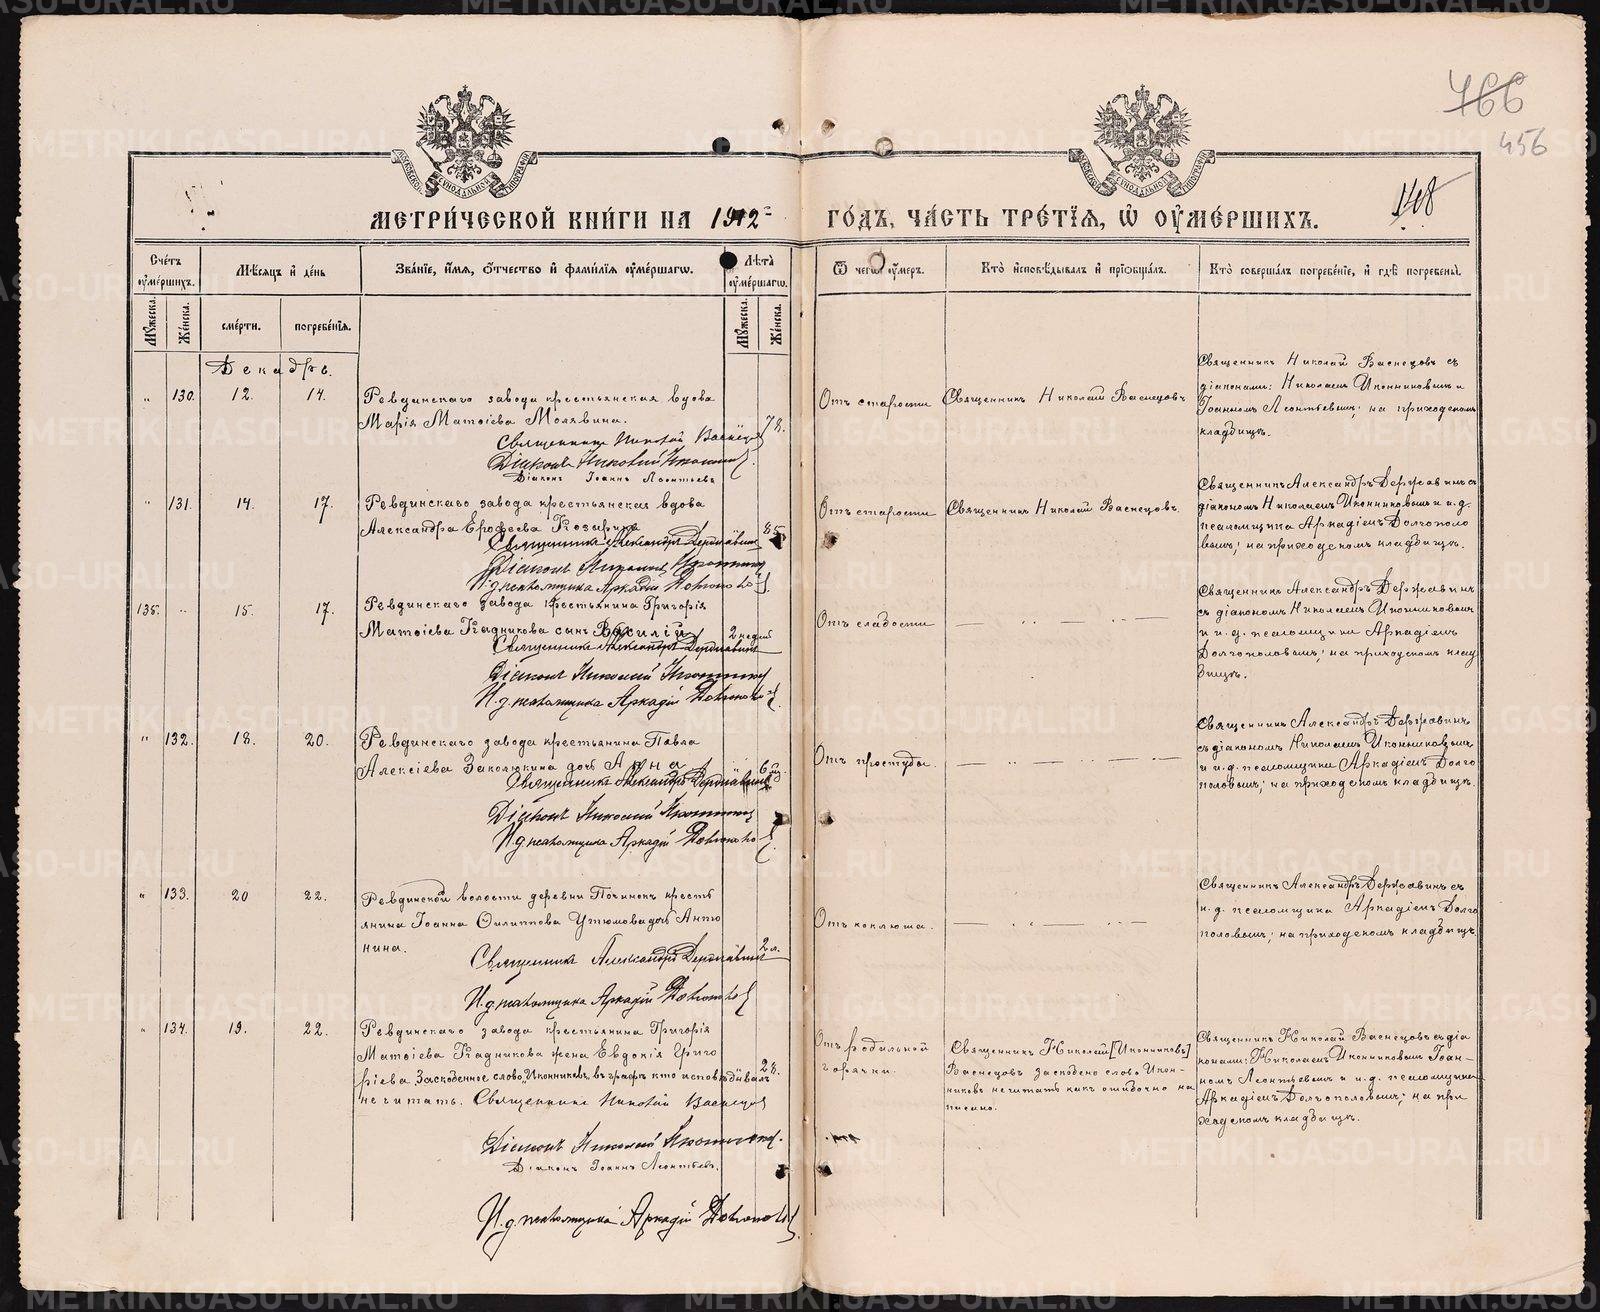 466
456
148
МОСКОВСКОЙ СѴНОДАЛЬНОЙ ТИПОГРАФІИ
МОСКОВСКОЙ СѴНОДАЛЬНОЙ ТИПОГРАФІИ
МЕТРИ́ЧЕСКОЙ КНИ́ГИ НА 1912 ГО́ДЪ, ЧА́СТЬ ТРЕ́ТЇѦ, Ѡ ОУМЕ́РШИХЪ.
Сче́тъ оумершихъ.
Мѣсяцъ и день
Зва́нїе, и́мѧ, ѻ́тчество и фами́лїѧ оуме́ршагѡ.
Лѣта оуме́ршагѡ.
Ѿ чегѡ оумеръ.
Кто исповѣдывалъ и прїобщалъ.
Кто совершалъ погребенїе, и гдѣ погребены.
Мужеска.
Женска.
смерти.
погребенїя.
Мужеска.
Женска.
Декабрь.
" 130. 12. 14. Ревдинскаго завода крестьянская вдова
Марія Матѳіева Молявина. 78.
Священникъ Николай Васнецовъ
Діаконъ Николай Иконников
Діаконъ Іоаннъ Леонтьевъ
Отъ старости
Священникъ Николай Васнецовъ
Священникъ Николай Васнецовъ съ
діаконами: Николаемъ Иконниковымъ и
Іоанномъ Леонтьевымъ; на приходскомъ
кладбищѣ.
" 131. 14. 17. Ревдинскаго завода крестьянская вдова
Александра Ерофеева Козырина 85.
Священникъ Александръ Державинъ
Діаконъ Николай Иконников
И. д. псаломщика Аркадій Долгополов
Отъ старости
Священникъ Николай Васнецовъ.
Священникъ Александръ Державинъ съ
діакономъ Николаемъ Иконниковымъ и и. д.
псаломщика Аркадіемъ Долгополо
вымъ; на приходскомъ кладбищѣ.
135. " 15. 17. Ревдинскаго завода крестьянина Григорія
Матѳіева Кадникова сынъ Василій 2 недѣл
Священникъ Александръ Державинъ
Діаконъ Николай Иконников
И. д. псаломщика Аркадій Долгополов
Отъ слабости
— " —
Священникъ Александръ Державинъ
съ діакономъ Николаемъ Иконниковым
и и. д. псаломщика Аркадіемъ
Долгополовымъ; на приходскомъ клад
бищѣ.
" 132. 18. 20. Ревдинскаго завода крестьянина Павла
Алексіева Заколюкина дочь Анна 6
Священникъ Александръ Державинъ
Діаконъ Николай Иконников
И. д. псаломщика Аркадій Долгополов
Отъ простуды.
— " — " —
Священникъ Александръ Державинъ
съ діакономъ Николаемъ Иконниковым
и и. д. псаломщика Аркадіемъ Долго
половымъ; на приходскомъ кладбищѣ.
" 133. 20 22. Ревдинской волости деревни Починокъ кресть
янина Іоанна Филиппова Утюмова дочь Анто
нина. 2 л.
Священникъ Александръ Державинъ
И. д. псаломщика Аркадій Долгополов
Отъ коклюша.
— " — " —
Священникъ Александръ Державинъ съ
и. д. псаломщика Аркадіемъ Долго
половымъ; на приходскомъ кладбищѣ
" 134. 19. 22. Ревдинскаго завода крестьянина Григорія
Матѳіева Кадникова жена Евдокія Григо
ріева. Заскобенное слово "Иконниковъ" въ графѣ кто исповѣдывалъ 28.
не читать. Священникъ Николай Васнецов
Діаконъ Николай Иконников.
Діаконъ Іоаннъ Леонтьевъ.
И. д. псаломщика Аркадій Долгополов
Отъ родильной
горячки
Священникъ Николай [Иконниковъ]
Васнецовъ заскобено слово Икон-
никовъ не читать какъ ошибочно на
писано.
Священникъ Николай Васнецовъ съ діа
конами: Николаемъ Иконниковымъ Іоан-
номъ Леонтьевымъ и и. д. псаломщика
Аркадіемъ Долгополовымъ; на при
ходскомъ кладбищѣ.
METRIKI.GASO-URAL.RU